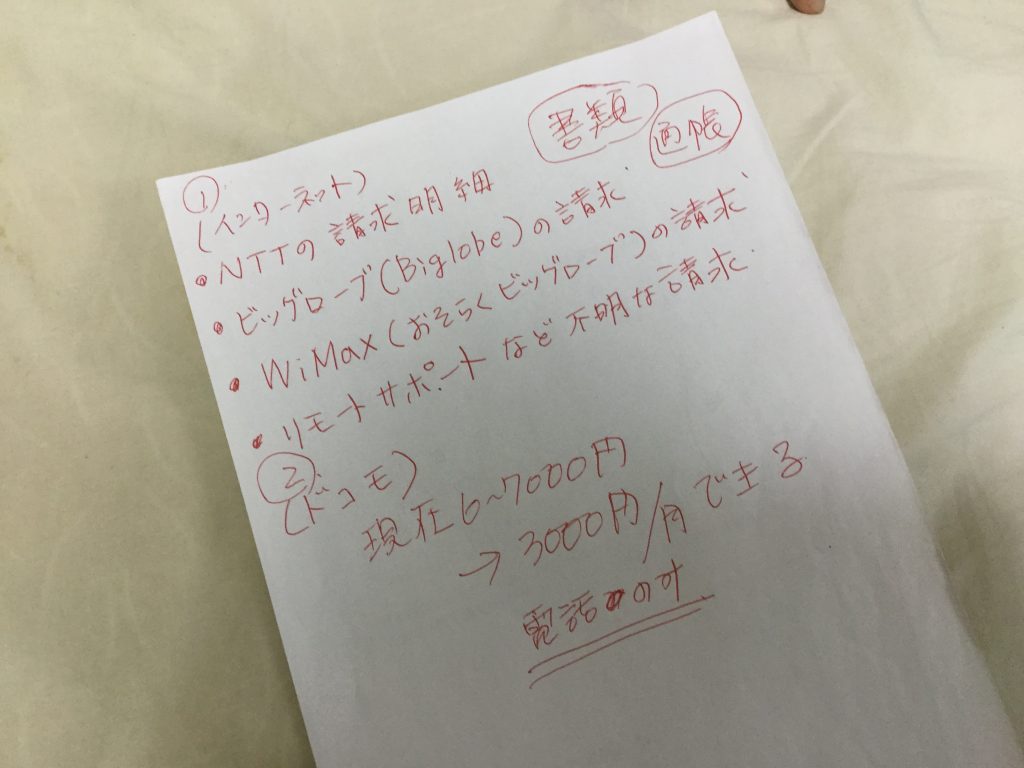 書類
通帳
①
(インターネット)
• NTTの請求明細
• ビッグローブ(Biglobe)の請求
• WiMax(おそらくビッグローブ)の請求
• リモートサポートなど不明な請求.
②
(ドコモ)
現在6~7000円
→3000円/月できる
電話のみ